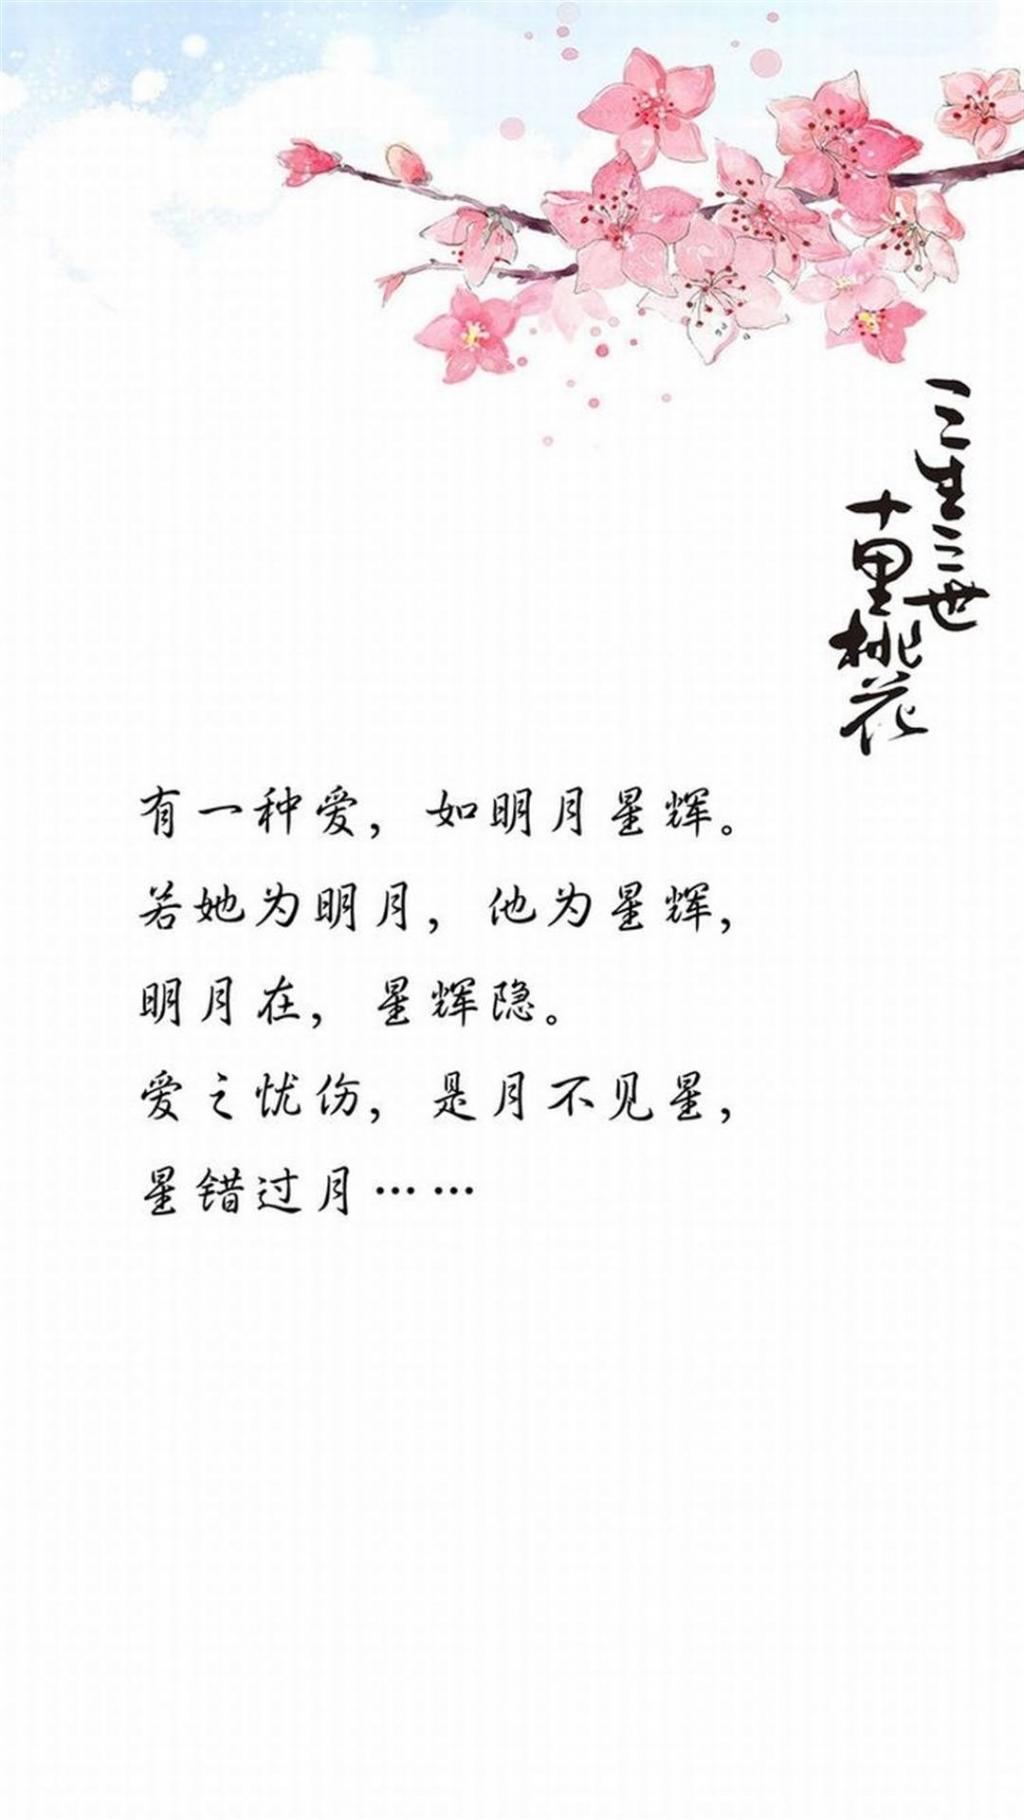 三生三世
十里桃花
有一种爱，如明月星辉。
若她为明月，他为星辉，
明月在，星辉隐。
爱之忧伤，是月不见星，
星错过月……